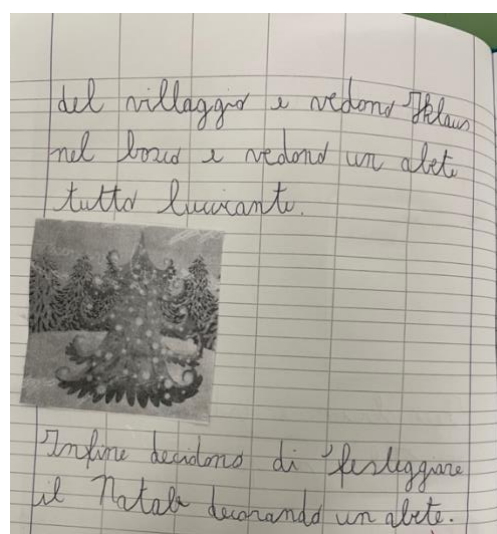 del villaggio e vedono Iklaus
nel bosco e vedono un abete
tutto luccicante.
Infine decidono di festeggiare
il Natale decorando un abete.